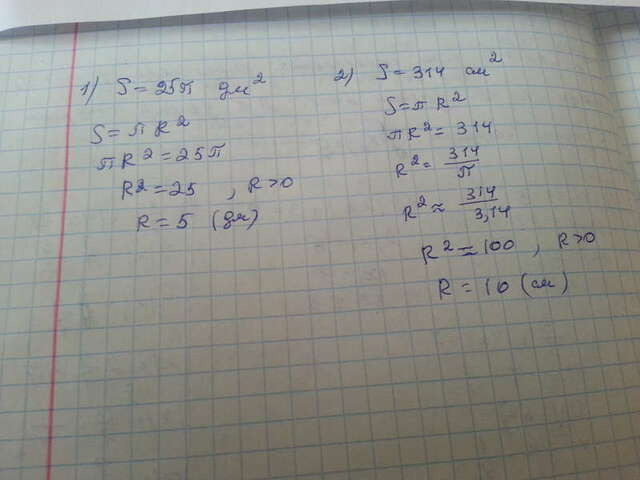 1) S = 25π дм²
S = π R²
πR² = 25π
R² = 25 , R>0
R = 5 (дм)
2) S = 314 см²
S = π R²
πR² = 314
R² = 314/π
R² ≈ 314/3,14
R² ≈ 100 , R>0
R = 10 (см)